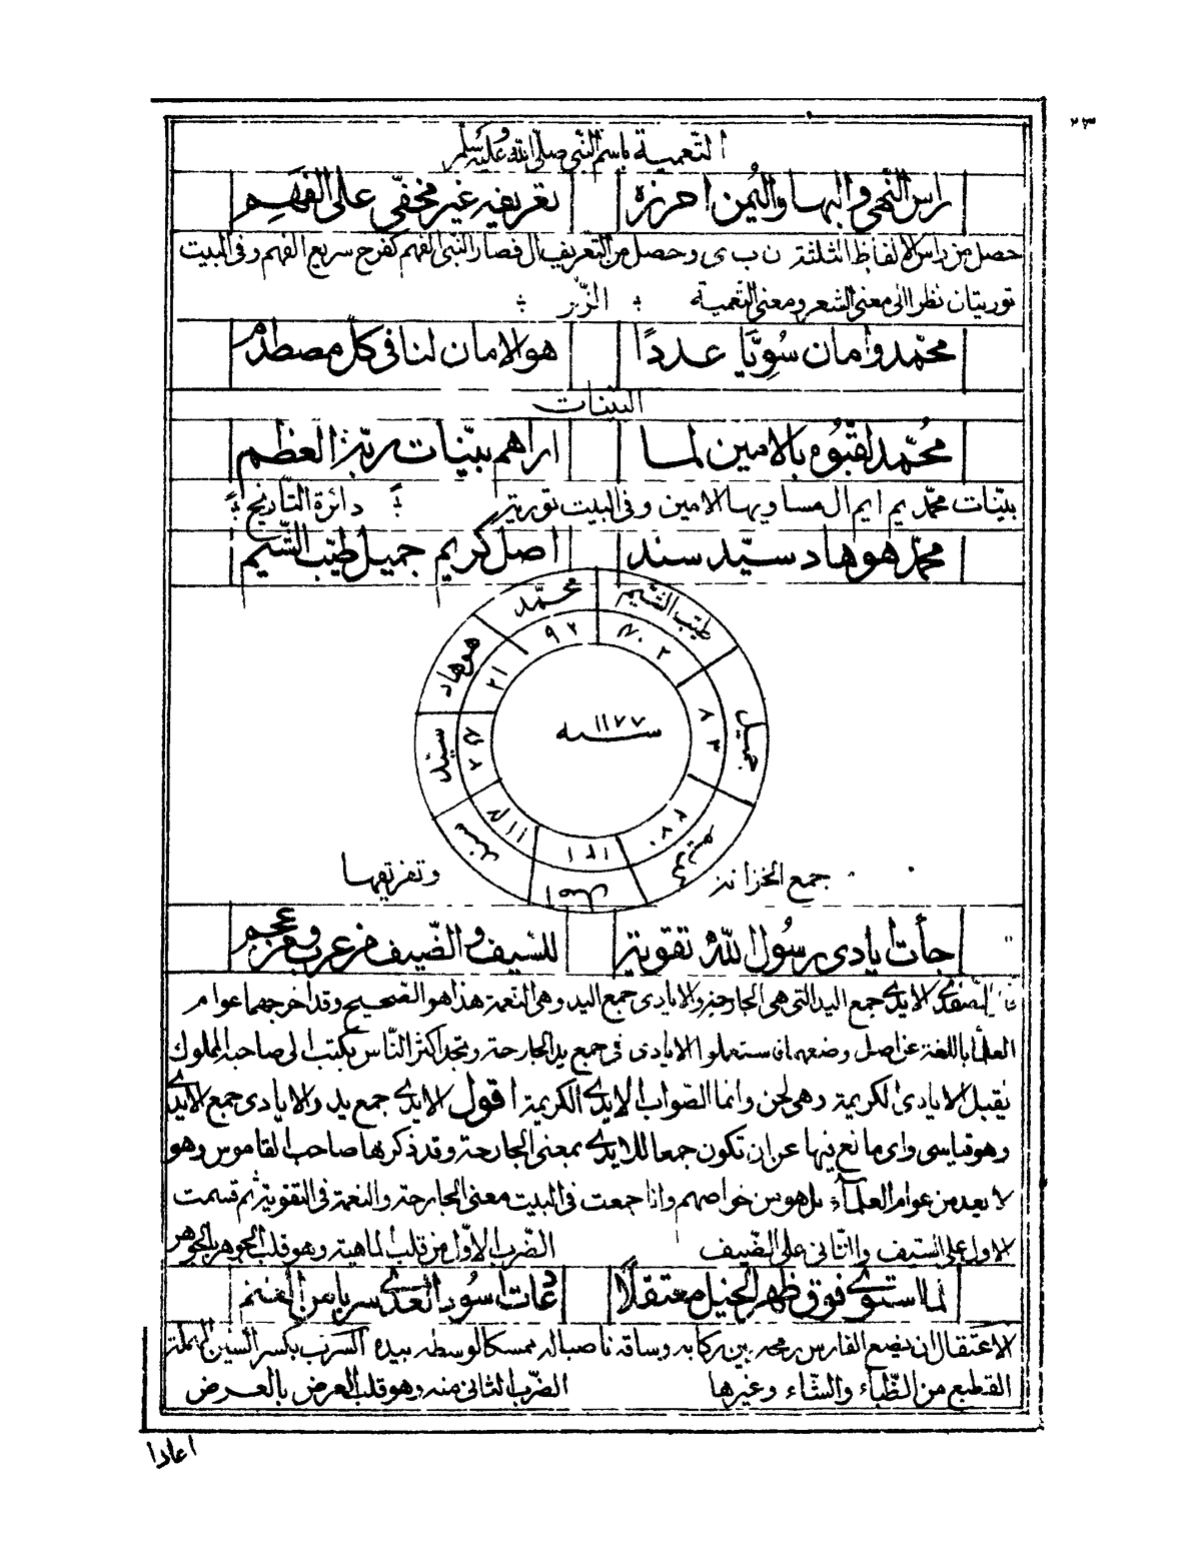 ٢٣
التعمية باسم النبي صلى الله عليه وسلم
راس النهى والبها واليمن احرزه تعريفه غير مخفي على الفهم
حصل من راس الالفاظ الثلثة ن ب ى وحصل من التعريف ال فصار النبي الفهم كفرح سريع الفهم وفى البيت
توريتان نظرا الى معنى الشعر ومعنى التعمية الزبر
محمد وامان سويا عددا هو الامان لنا فى كل مصطدم
البينات
محمد لقبوه بالامين لما اراهم ببينات ربة العظم
بينات محمد يم ا يم ال مساويها الامين وفى البيت تورية دائرة التاريخ
محمد هو هاد سيد سند اصل كريم جميل طيب الشيم
محمد ٩٢
هو هاد ٢١
سيد ٧٤
سند ١١٤
اصل ١٢١
كريم ٢٧٠
جميل ٨٣
طيب الشيم ٤٠٢
سنه ١١٧٧
جمع الخزانة وتفريقها
جأت ايادى رسول الله تقوية للسيف والضيف من عرب ومن عجم
قال الصفدي الايدي جمع اليد التى هى الجارحة والايادى جمع اليد وهى النعمة هذا هو الصحيح وقد اخرجهما عوام
العلماء باللغة عن اصل وضعهما فاستعملوا الايادى فى جمع يد الجارحة وتجد اكثر الناس يكتب الى صاحبه المملوك
يقبل الايادى الكريمة وهى لحن وانما الصواب الايدي الكريمة اقول الايدي جمع يد والايادى جمع الايدي
وهو قياسى واى مانع ينها عن ان تكون جمعا للايدي بمعنى الجارحة وقد ذكرها صاحب القاموس وهو
لا يعد من عوام العلماء بل هو من خواصهم وانا جمعت فى البيت معنى الجارحة والنعمة فى التقوية ثم قسمت
الاول على السيف والثانى على الضيف الضرب الاول من قلب الماهية وهو قلب الجوهر بالجوهر
لما استوى فوق ظهر الخيل معتقلا عات اسود العدى سربا من الغنم
الاعتقال ان يضع الفارس رمحه بين ركابه وساقه ناصبا له ممسكا لوسطه بيده السرب بكسر السين المهملة
القطيع من الظباء والشاء وغيرها الضرب الثانى منه وهو قلب العرض بالعرض
اعادا